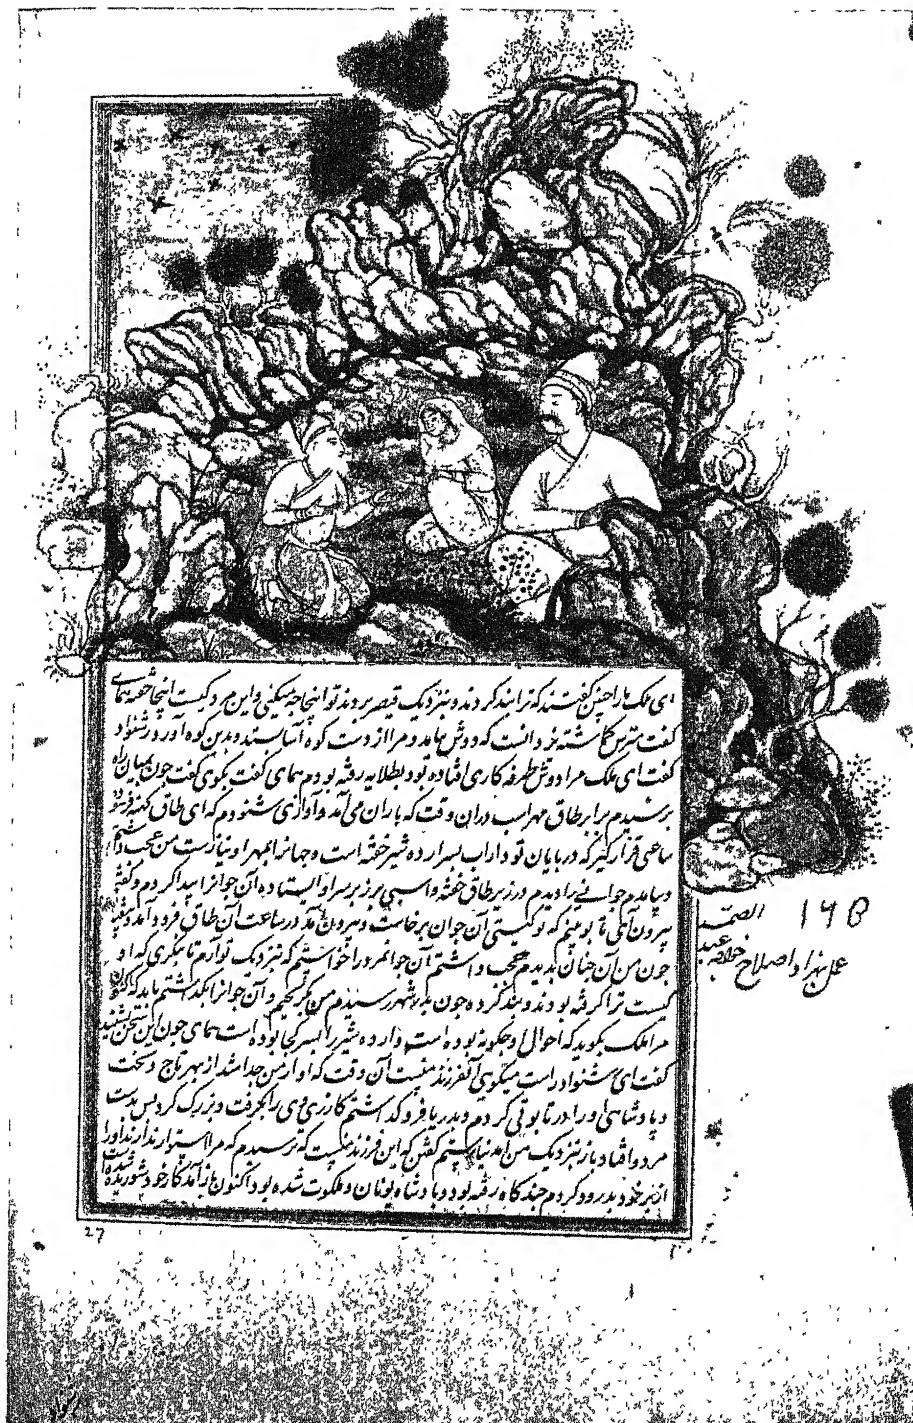 ای ملک ما را چنین گفتند که ترا بند کردند و بنزدیک قیصر بردند تو اینجا چه میکنی و این مرد کیست اینجا
گفت مترس که دوش بیامد و مرا از دست آورد
گفت ای ملک مرا دوش طرفه کاری افتاده بود بطلایه رفته بودم همای گفت بگوی گفت چون بمیان راه
برسیدم برابر طاق مهراب در آن وقت که باران می آمد و آوازی شنودم که ای طاق کهنه
ساعتی قرار گیر که در پایان تو داراب بسر ارده شیر خفته است و جهانرا بمهر او نیازست من عجب داشتم
و بیامدم جوانی را دیدم در زیر طاق خفته و اسبی بر زبر سر او ایستاده آن جوانرا بیدا کردم و گفتم
بیرون آی تا بوینم که تو کیستی آن جوان برخاست و بیرون آمد در ساعت آن طاق فرود آمد
چون من آن چنان بدیدم عجب داشتم آن جوانمرد را خواستم که بنزدیک تو آرم تا بنگری که او
کیست ترا گرفته بودند و بند کرده چون بدر شهر رسیدم من بگریختم و آن جوانرا بگذاشتم باید که
مرا ملک بگوید که احوال او چگونه بوده است و ارده شیر را بسر کجا بوده است همای چون این سخن بشنید
گفت ای رشنواد راست میگویی آن فرزند منست آن وقت که او از من جدا شد از بهر تاج و تخت
و پادشاهی او را در تابوتی کردم و بدریا فرو گذاشتم گازری وی را بگرفت و بزرگ کرد پس بدست
مرد و افتاد باز بنزدیک من آمد نیارستم گفتن که این فرزند منست که ترسیدم که مرا استوار ندارند او را
از بر خود بدرود کردم چند گاه رفته بود و پادشاه یونان و ملکوت شده بود اکنون باز آمد کار خود شوریده
۱۶۵
عمل بهزاد اصلاح خواجه عبد الصمد
27